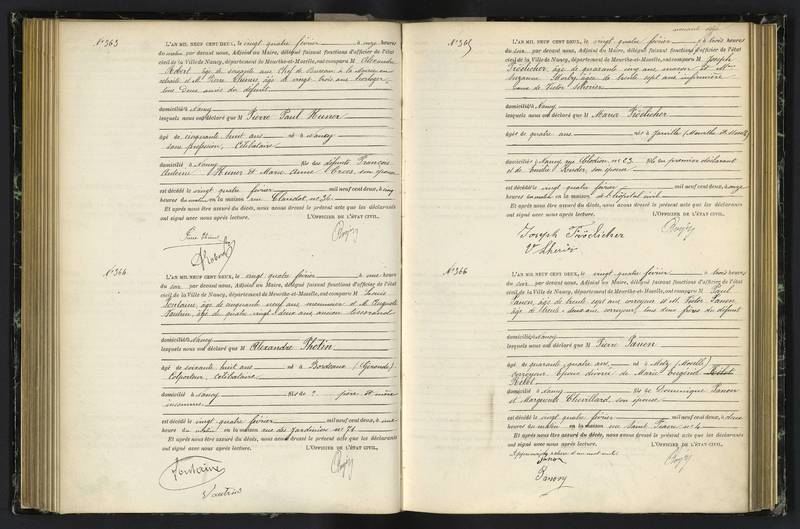 N° 363
L'AN MIL NEUF CENT DEUX, le vingt quatre février à onze heures
du matin par devant nous, Adjoint au Maire, délégué faisant fonctions d'officier de l'état
civil de la Ville de Nancy, département de Meurthe-et-Moselle, ont comparu M Alexandre
Robert, âgé de soixante ans, Chef de Bureau à la Mairie en
retraite et M. Pierre âgé de vingt trois ans
tous deux amis du défunt
domiciliés à Nancy
lesquels nous ont déclaré que M Pierre Paul
âgé de cinquante huit ans né à Nancy
sans profession, Célibataire
domicilié à Nancy fils des défunts François
Antoine et Marie Anne son épouse
est décédé le vingt quatre février mil neuf cent deux, à cinq
heures du matin en la maison, rue Claudot, n° 36
Et après nous être assuré du décès, nous avons dressé le présent acte que les déclarants
ont signé avec nous après lecture. L'OFFICIER DE L'ÉTAT CIVIL,
N° 364
L'AN MIL NEUF CENT DEUX, le vingt quatre février à une heure
du soir par devant nous, Adjoint au Maire, délégué faisant fonctions d'officier de l'état
civil de la Ville de Nancy, département de Meurthe-et-Moselle, ont comparu M Louis
Fontaine, âgé de cinquante neuf ans, menuisier et M. Auguste
Vautrin, âgé de quatre vingt deux ans, ancien tisserand
domiciliés à Nancy
lesquels nous ont déclaré que M Alexandre Photin
âgé de soixante huit ans né à Bordeaux (Gironde)
Colporteur, célibataire
domicilié à Nancy fils de ? père et mère
inconnus
est décédé le vingt quatre février mil neuf cent deux, à une
heure du matin en la maison rue des Jardiniers n° 71
Et après nous être assuré du décès, nous avons dressé le présent acte que les déclarants
ont signé avec nous après lecture. L'OFFICIER DE L'ÉTAT CIVIL,
Fontaine
Vautrin
N° 365
L'AN MIL NEUF CENT DEUX, le vingt quatre février à trois heures
du soir par devant nous, Adjoint au Maire, délégué faisant fonctions d'officier de l'état
civil de la Ville de Nancy, département de Meurthe-et-Moselle, ont comparu M Joseph
Fröelicher, âgé de quarante cinq ans, et Mme
Suzanne âgée de trente sept ans infirmière
de Victor
domiciliés à Nancy
lesquels nous ont déclaré que M Marie Fröelicher
âgée de quatre ans née à Jarville (Meurthe et Moselle)
domiciliée à Nancy rue Clodion, n° 23 fille du premier déclarant
et de Emilie son épouse
est décédée le vingt quatre février mil neuf cent deux, à onze
heures du matin en la maison, à l'hôpital civil
Et après nous être assuré du décès, nous avons dressé le présent acte que les déclarants
ont signé avec nous après lecture. L'OFFICIER DE L'ÉTAT CIVIL,
Joseph Fröelicher
N° 366
L'AN MIL NEUF CENT DEUX, le vingt quatre février à trois heures
du soir par devant nous, Adjoint au Maire, délégué faisant fonctions d'officier de l'état
civil de la Ville de Nancy, département de Meurthe-et-Moselle, ont comparu M Paul
Panon, âgé de trente sept ans corroyeur et M. Victor Panon
âgé de trente deux ans corroyeur, tous deux frères du défunt
domiciliés à Nancy
lesquels nous ont déclaré que M Pierre Panon
âgé de quarante quatre ans né à Metz (Moselle)
corroyeur, Epoux divorcé de Marie Eugénie
domicilié à Nancy fils de Dominique Panon
et Marguerite Chevillard son épouse
est décédé le vingt quatre février mil neuf cent deux, à deux
heures du matin en la maison rue Saint n° 4
Et après nous être assuré du décès, nous avons dressé le présent acte que les déclarants
ont signé avec nous après lecture. L'OFFICIER DE L'ÉTAT CIVIL,